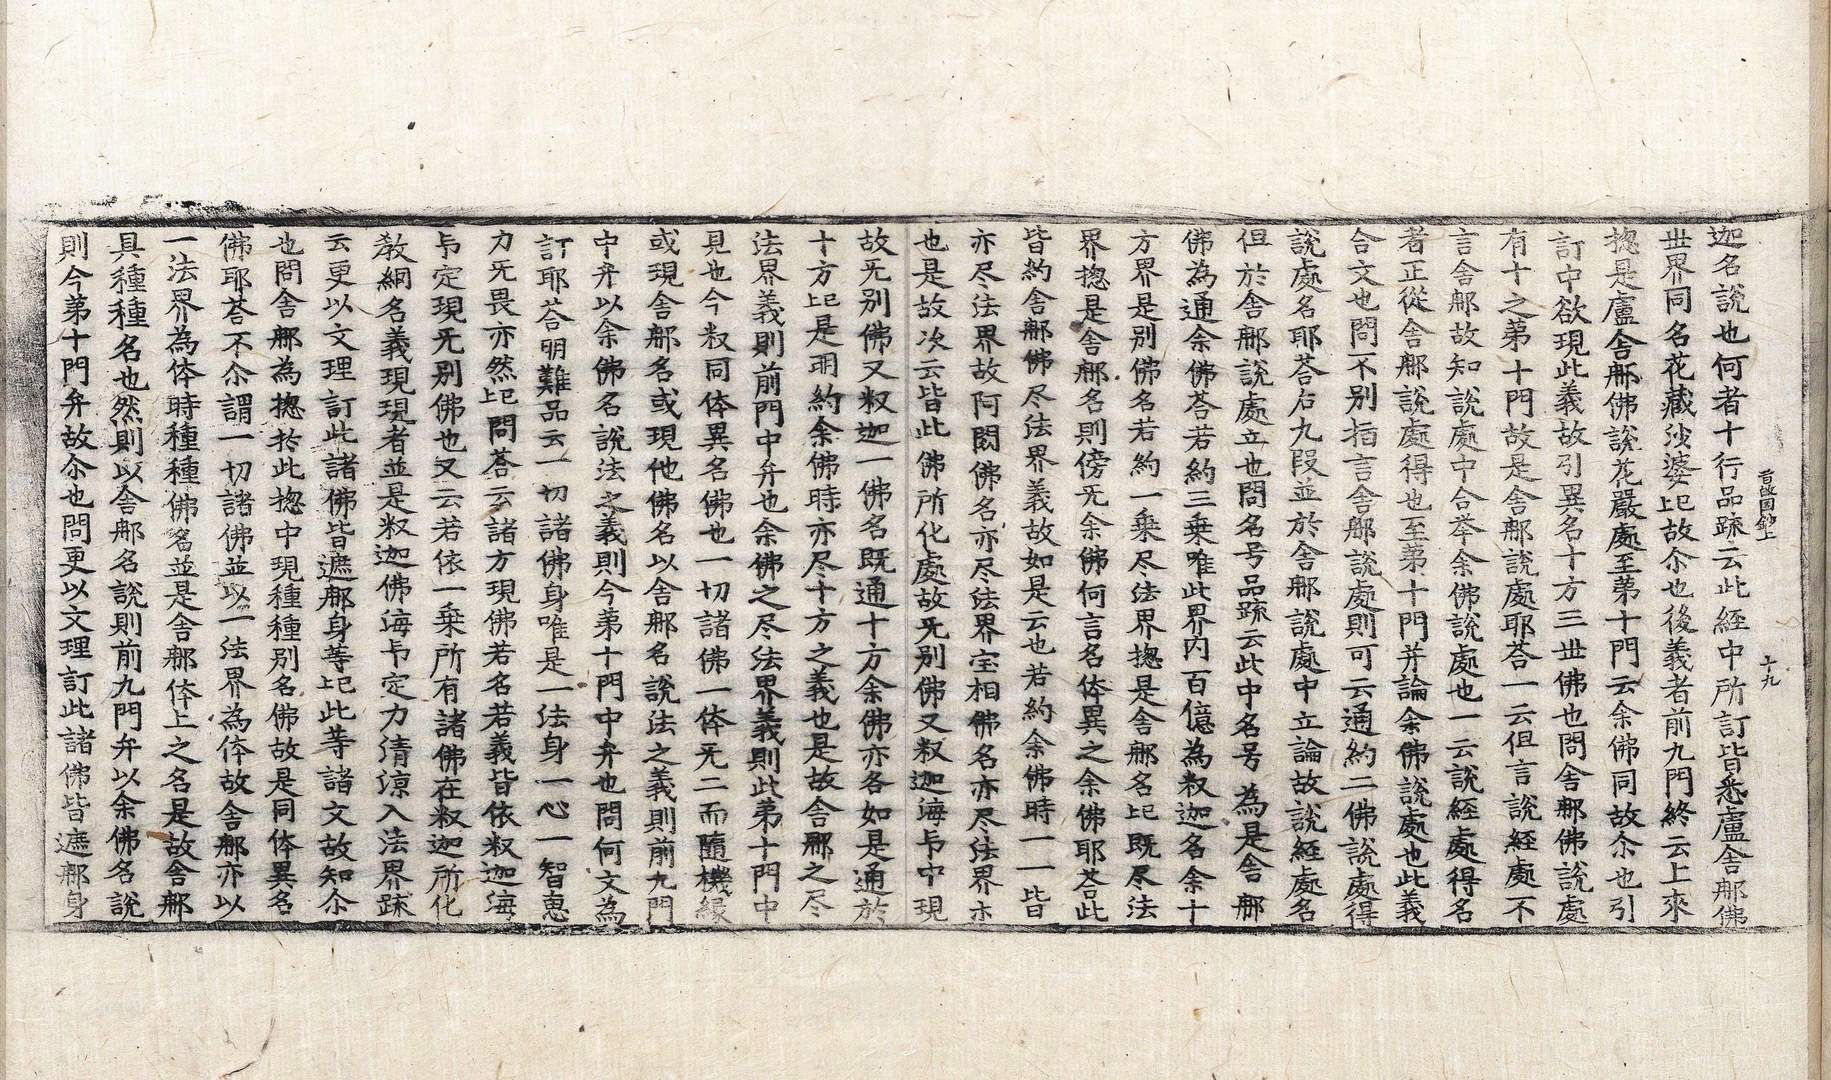 旨歸圎鈔上
十九
迦名說也何者十行品疏云此経中所訂皆悉盧舍郍佛
世界同名花藏沙婆𭥍故尒也後義者前九門終云上來
揔是盧舍郍佛說花嚴處至第十門云余佛同故尒也引
訂中欲現此義故引異名十方三世佛也問舍郍佛說處
有十之第十門故是舍郍說處耶荅一云但言說経處不
言舍郍故知說處中合举余佛說處也一云說経處得名
者正從舍郍說處得也至第十門并論余佛說處也此義
合文也問不別指言舍郍說處則可云通約二佛說處得
說處名耶荅右九段並於舍郍說處中立論故說経處名
但於舍郍說處立也問名号品疏云此中名号為是舍郍
佛為通余佛荅若約三乗唯此界内百億為釈迦名余十
方界是別佛名若約一乗尽法界揔是舍郍名𭥍既尽法
界揔是舍郍名則傍旡余佛何言名体異之余佛耶荅此
皆約舍郍佛尽法界義故如是云也若約余佛時一一皆
亦尽法界故阿閦佛名亦尽法界宝相佛名亦尽法界亦
也是故次云皆此佛所化處故旡別佛又釈迦海卐中現
故旡別佛又釈迦一佛名既通十方余佛亦各如是通於
十方𭥍是明約余佛時亦尽十方之義也是故舍郍之尽
法界義則前門中弁也余佛之尽法界義則此第十門中
見也今釈同体異名佛也一切諸佛一体旡二而隨機縁
或現舍郍名或現他佛名以舍郍名說法之義則前九門
中弁以余佛名說法之義則今第十門中弁也問何文為
訂耶荅明難品云一切諸佛身唯是一法身一心一智惠
力旡畏亦然𭥍問荅云諸方現佛若名若義皆依釈迦海
卐定現旡別佛也又云若依一乗所有諸佛在釈迦所化
教網名義現現者並是釈迦佛海卐定力清涼入法界䟽
云更以文理訂此諸佛皆遮郍身等𭥍此等諸文故知尒
也問舍郍為揔扵此揔中現種種別名佛故是同体異名
佛耶荅不尒謂一切諸佛並以一法界為体故舍郍亦以
一法界為体時種種佛名並是舍郍体上之名是故舍郍
具種種名也然則以舍郍名說則前九門弁以余佛名說
則今第十門弁故尒也問更以文理訂此諸佛皆遮郍身